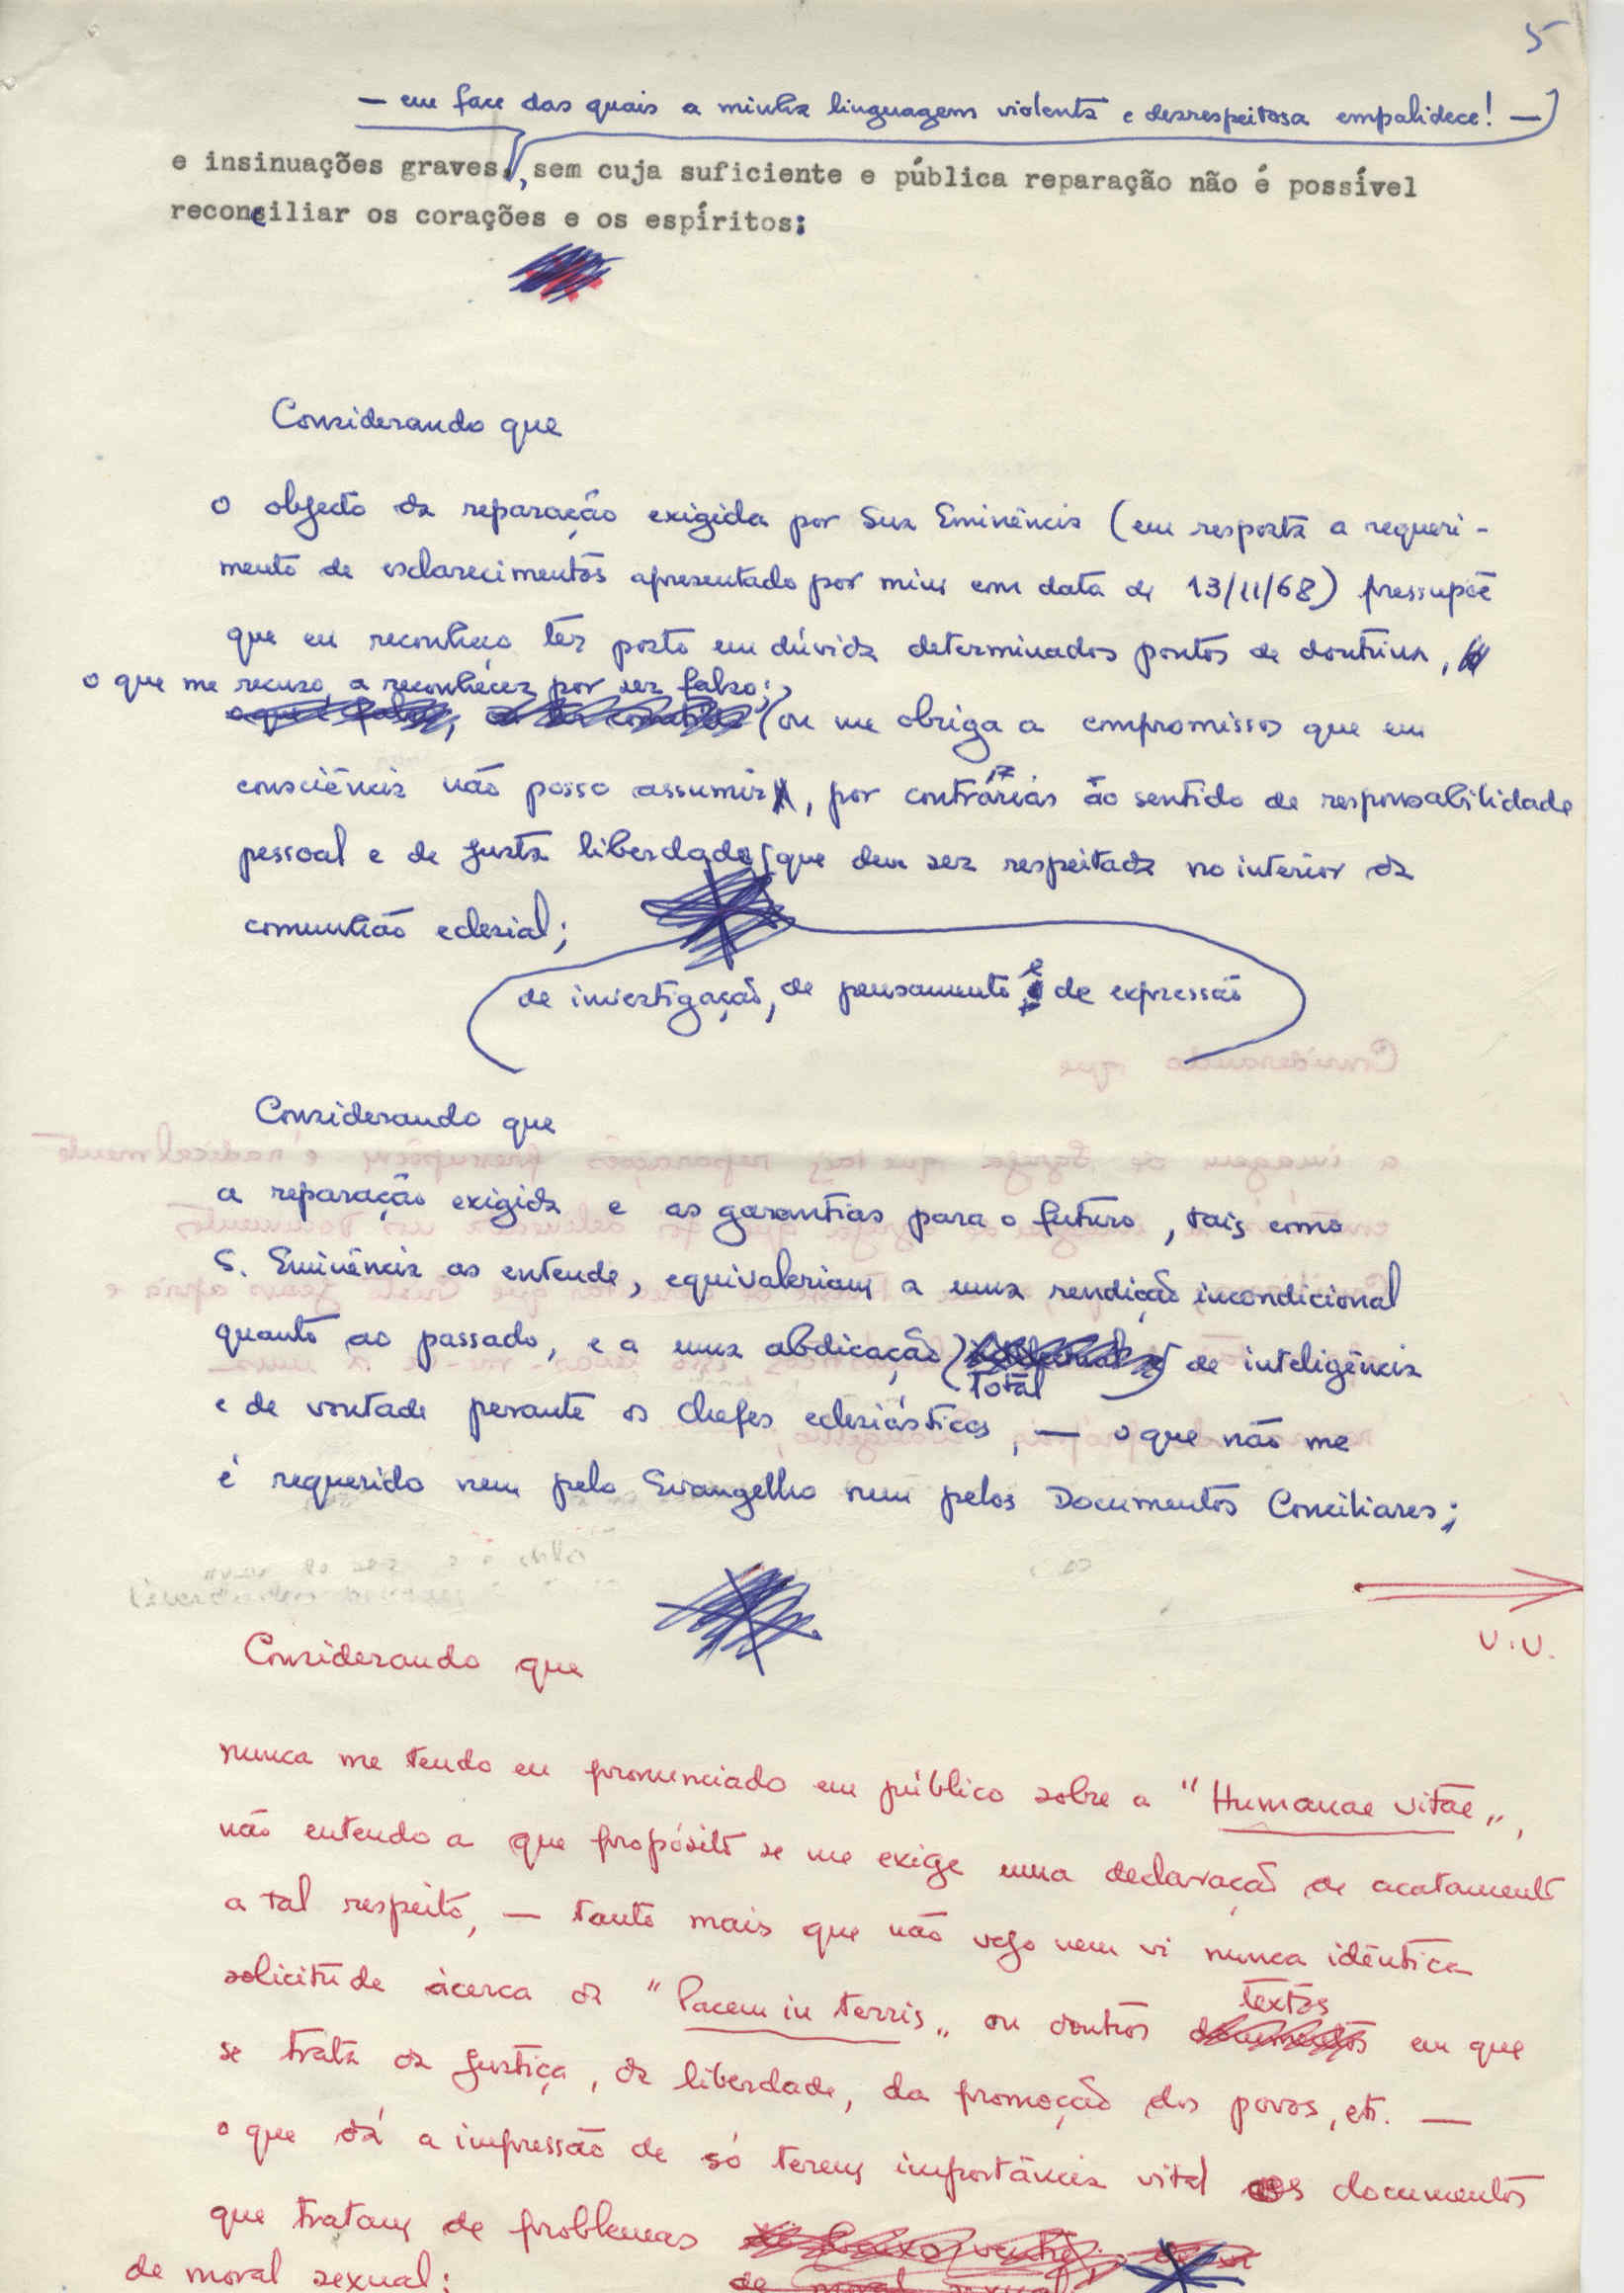 5
— em face das quais a minha linguagem violenta e desrespeitosa empalidece! —
e insinuações graves, sem cuja suficiente e pública reparação não é possível
reconciliar os corações e os espíritos;
Considerando que
o objecto da reparação exigida por Sua Eminência (em resposta a requeri-
mento de esclarecimentos apresentado por mim em data de 13/11/68) pressupõe
que eu reconheço ter posto em dúvida determinados pontos de doutrina,
o que me recuso a reconhecer por ser falso;
ou me obriga a compromissos que em
consciência não posso assumir, por contrários ao sentido de responsabilidade
pessoal e de justa liberdade que deve ser respeitada no interior da
comunhão eclesial;
de investigação, de pensamento e de expressão
Considerando que
a reparação exigida e as garantias para o futuro, tais como
S. Eminência as entende, equivaleriam a uma rendição incondicional
quanto ao passado, e a uma abdicação de inteligência
total
e de vontade perante os chefes eclesiásticos, — o que não me
é requerido nem pelo Evangelho nem pelos Documentos Conciliares;
V.V.
Considerando que
nunca me tendo eu pronunciado em público sobre a "Humanae vitae",
não entendo a que propósito se me exige uma declaração de acatamento
a tal respeito, — tanto mais que não vejo nem vi nunca idêntica
solicitude àcerca da "Pacem in terris" ou doutros documentos em que
textos
se trata da justiça, da liberdade, da promoção dos povos, etc. —
o que dá a impressão de só terem importância vital os documentos
que tratam de problemas
de moral sexual;
de moral sexual